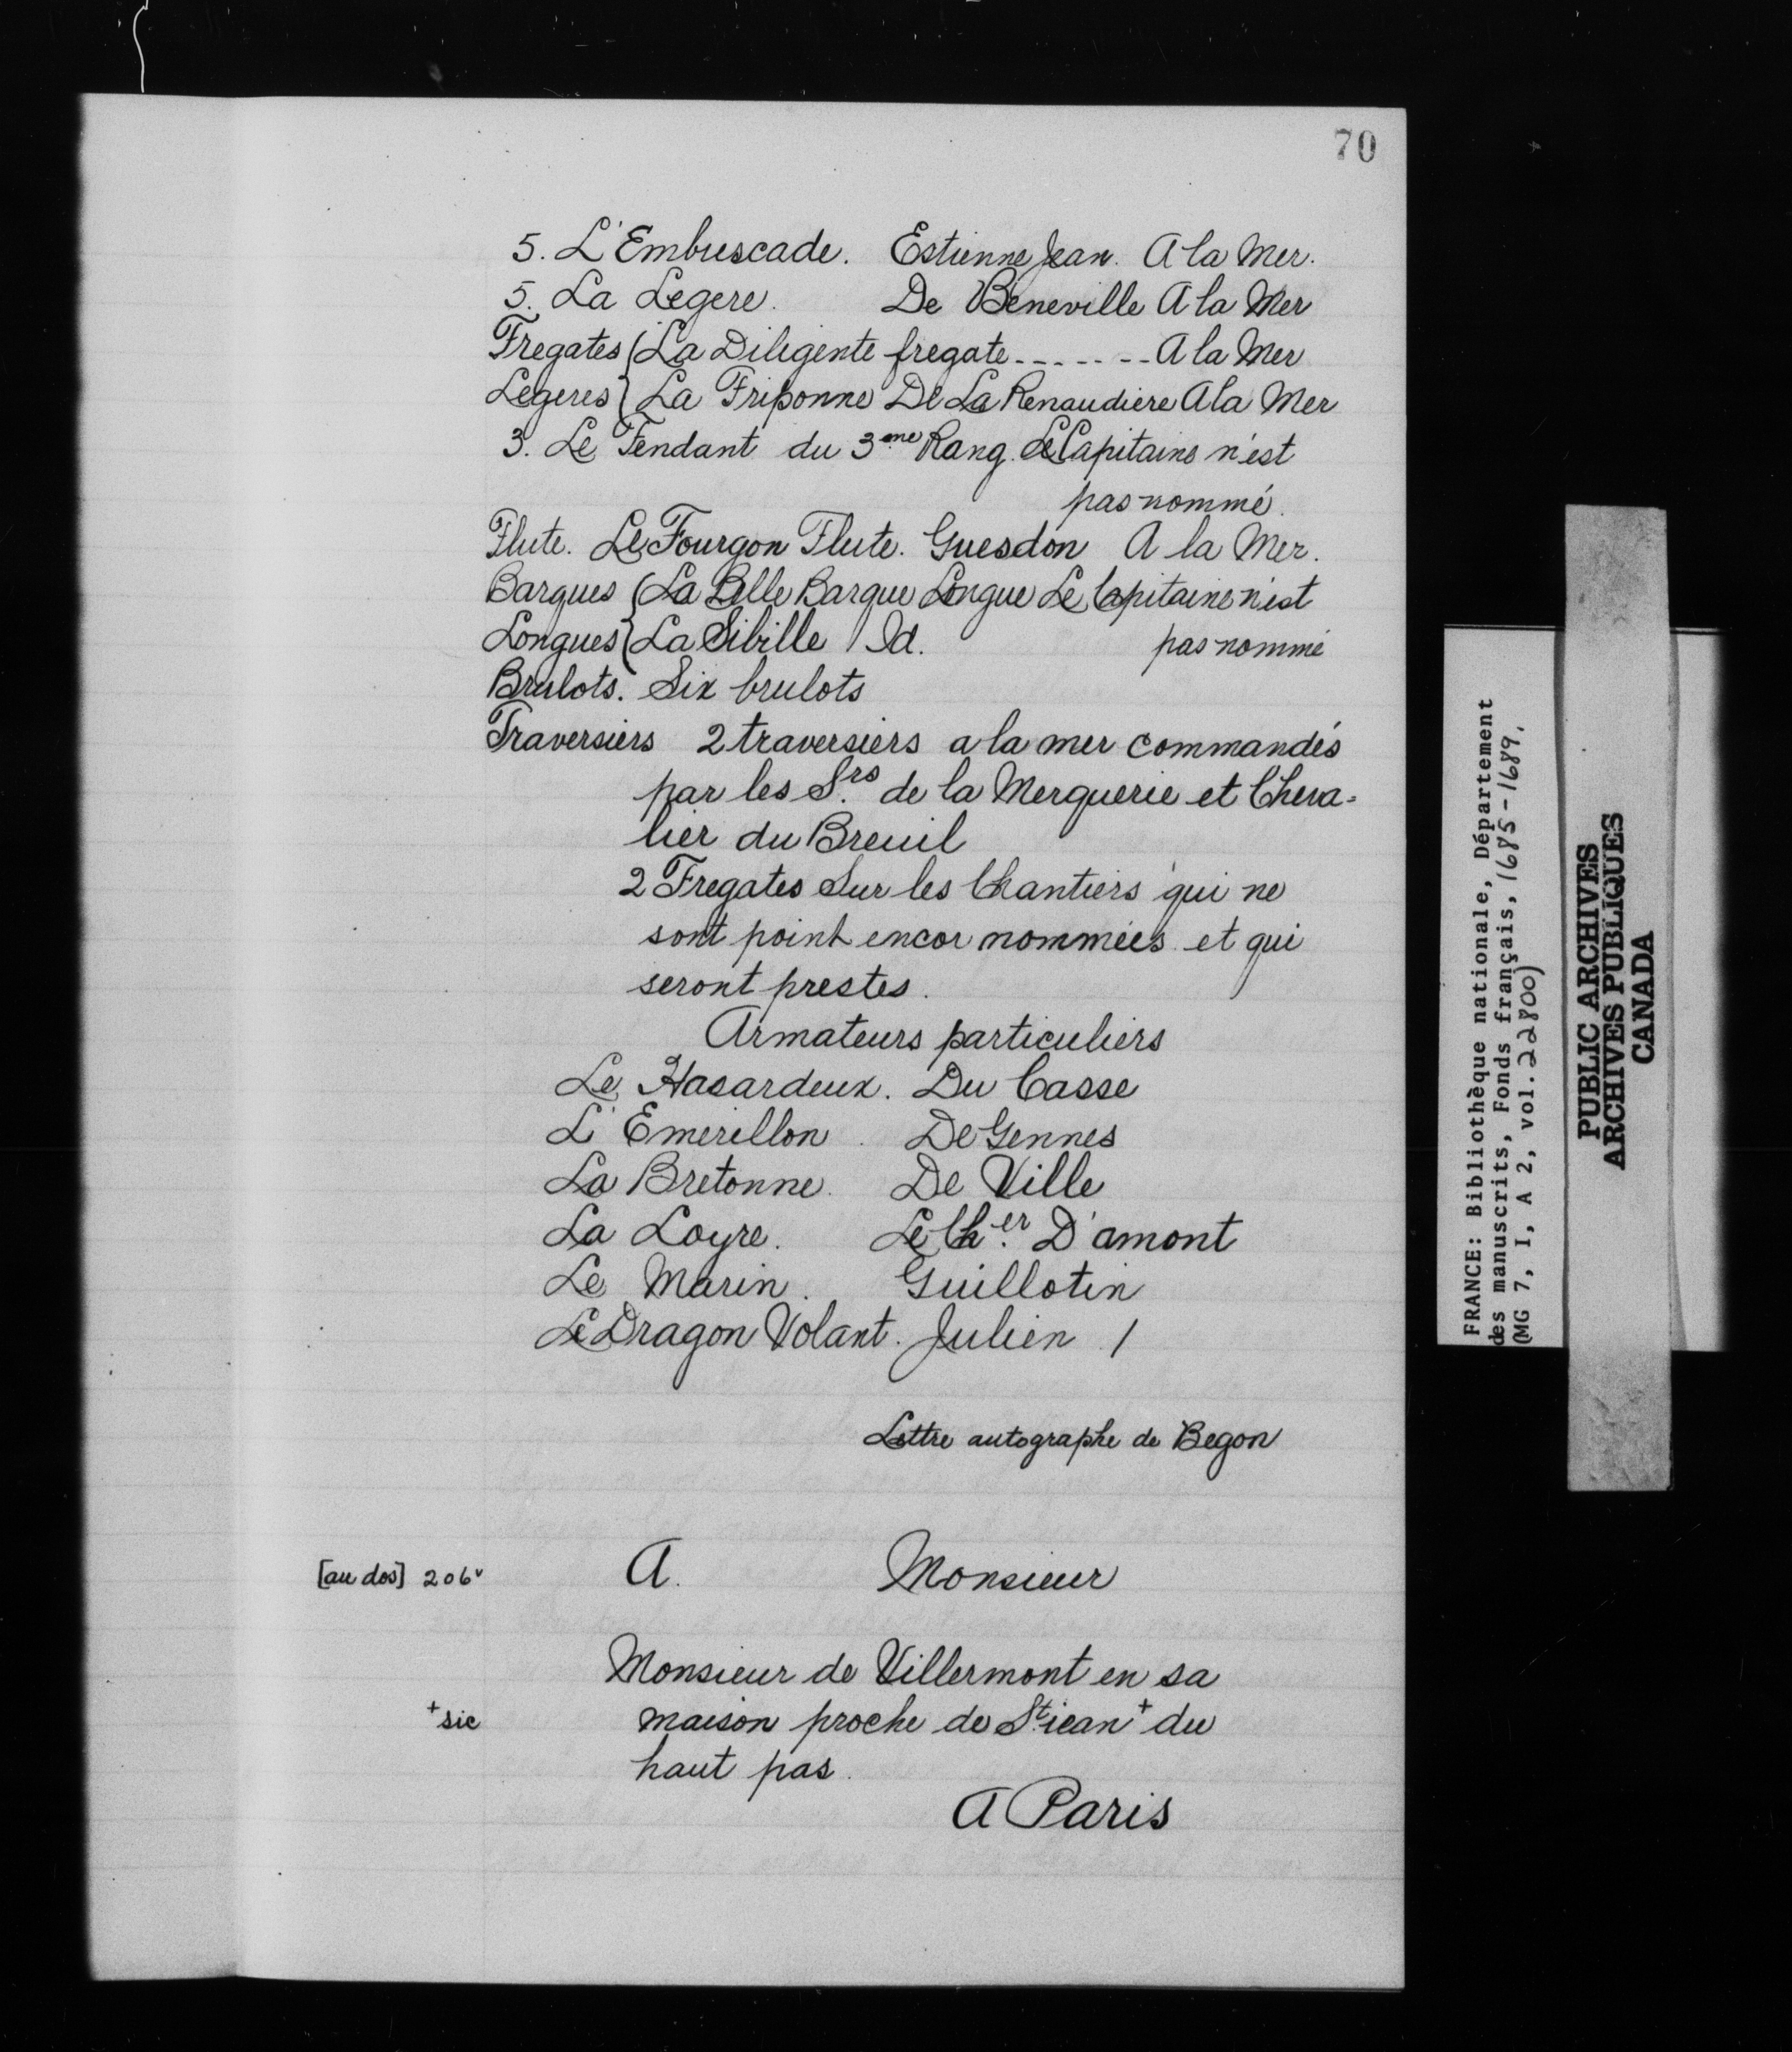 70
5. L'Embuscade. Estienne Jean. A la Mer.
5. La Legere. De Beneville A la Mer
Fregates { La Diligente fregate ------- A la Mer
Legeres { La Friponne De La Renaudiere A la Mer
3. Le Fendant du 3me Rang. Le Capitaine n'est
pas nommé.
Flute. Le Fourgon Flute. Guesdon A la Mer.
Barques { La Belle Barque Longue Le Capitaine n'est
Longues { La Sibille Id. pas nommé
Brulots. Six brulots
Traversiers 2 traversiers a la mer commandés
par les Srs de la Merguerie et Cheva=
lier du Breuil
2 Fregates Sur les Chantiers qui ne
sont point encor nommées et qui
seront prestes.
Armateurs particuliers
Le Hasardeux. Du Casse
L'Emerillon. De Gennes
La Bretonne. De Ville
La Loyre. Le Cher. D'amont
Le Marin. Guillotin
Le Dragon Volant. Julien /
Lettre autographe de Begon
[au dos] 206v A. Monsieur
Monsieur de Villermont en sa
+sic maison proche de St iean+ du
haut pas.
A Paris
FRANCE: Bibliothèque nationale, Département
des manuscrits, Fonds français, 1685-1689,
(MG 7, I, A 2, vol. 22800)
PUBLIC ARCHIVES
ARCHIVES PUBLIQUES
CANADA